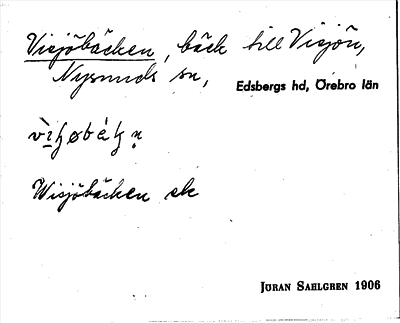 Visjöbäcken, bäck till Visjön,
Nysunds sn,
Edsbergs hd, Örebro län
Wisjöbäcken ek
JÖRAN SAHLGREN 1906